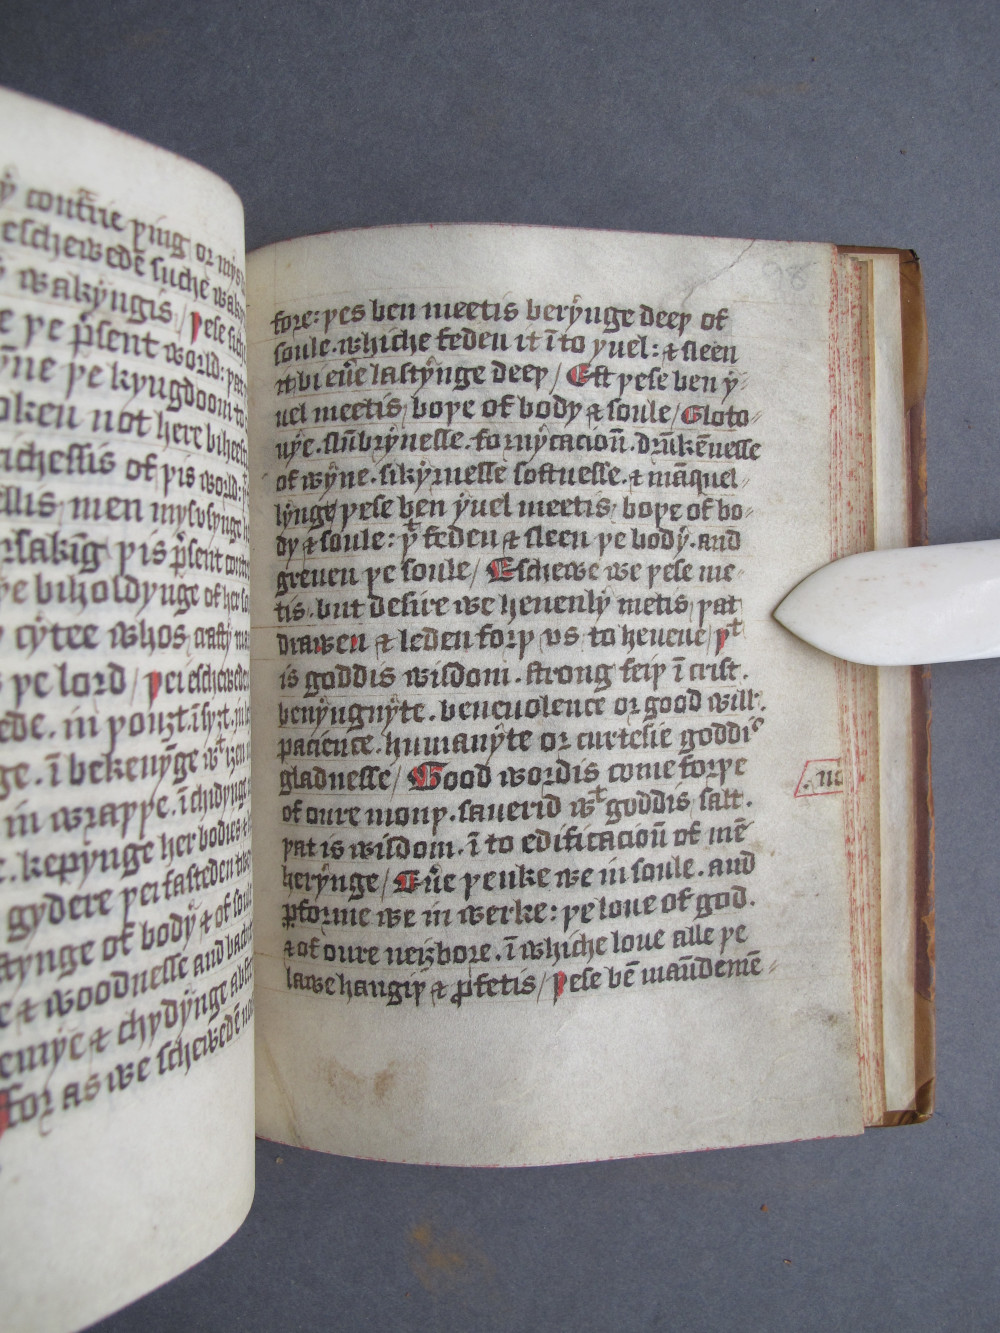 ẏ cont̃rie þing or mẏs
escheweden̄ suche wakẏn
wakẏngis / Þese sich
e þe p̃sent world: þat
ẏne þe kyngdoom to
oken not here biheest
ichessis of þis world:
ellis men mysvsynge
rsakīg þis p̃sent
þe biholdynge of her
cẏtee whos crafty
þe lord / Þei escheweden
ede. in þouȝt. ī syȝt. in
ge. ī bekenyn̄ge wt
in wrappe. ī chidynge
kepẏnge her bodies
gydere þei fasteden two
stynge of bodẏ & of soule
e & woodnesse and bac
emẏe & chydẏnge
for as we schewedē no
98
fore: þes ben meetis berẏnge deeþ of
soule. whiche feden it ī to yuel: & sleen
it bi eũe lastẏnge deeþ / Eft þese ben ẏ-
uel meetis / boþe of body & soule / Gloto-
nẏe. slũbrẏnesse. fornẏcacioũ. drũkēnesse
of wẏne. sikẏrnesse softnesse. & mãquel-
lẏnge / þese ben ẏuel meetis / boþe of bo-
dẏ & soule: þt feden & sleen þe bodẏ. and
greuen þe soule / Eschewe we þese me-
tis. but desire we heuenlẏ metis / þat
drawen & leden forþ vs to heuene / þt
is goddis wisdom. strong feiþ ī crist.
benẏngnẏte. beneuolence or good will.
pacience. humanẏte or curtesie goddis
gladnesse / Good wordis come forþe
of oure mouþ. sauerid wt goddis salt.
þat is wisdom. ī to edificacioũ of mē
herẏnge / Eũe þenke we in soule. and
ꝑforme we in werke: þe loue of god.
& of oure neiȝbore. ī whiche loue alle þe
lawe hangiþ & ꝓfetis / Þese bē maũdemē-